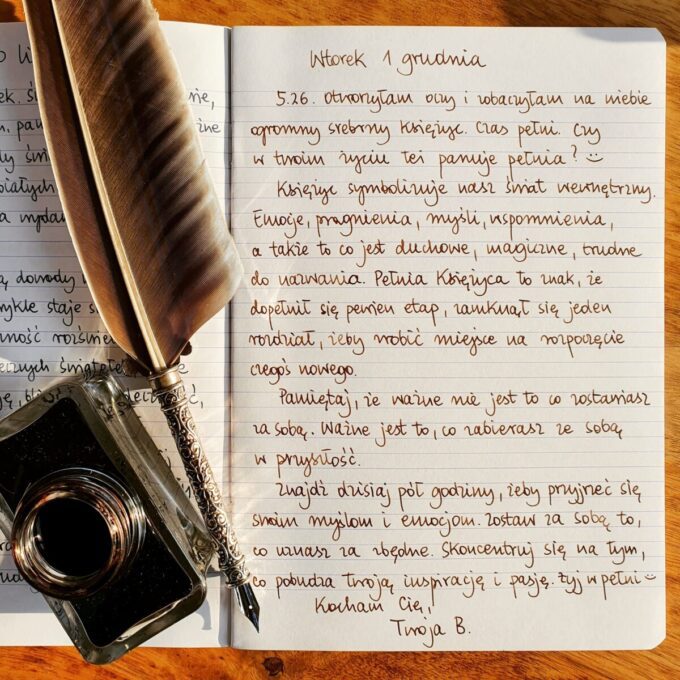 dowody
staje
Wtorek 1 grudnia
5.26. Otworzyłam oczy i zobaczyłam na niebie
ogromny srebrny Księżyc. Czas pełni. Czy
w twoim życiu też panuje pełnia? :)
Księżyc symbolizuje nasz świat wewnętrzny.
Emocje, pragnienia, myśli, wspomnienia,
a także to co jest duchowe, magiczne, trudne
do nazwania. Pełnia Księżyca to znak, że
dopełnił się pewien etap, zamknął się jeden
rozdział, żeby zrobić miejsce na rozpoczęcie
czegoś nowego.
Pamiętaj, że ważne nie jest to co zostawiasz
za sobą. Ważne jest to, co zabierasz ze sobą
w przyszłość.
Znajdź dzisiaj pół godziny, żeby przyjrzeć się
swoim myślom i emocjom. Zostaw za sobą to,
co uznasz za zbędne. Skoncentruj się na tym,
co pobudza Twoją inspirację i pasję. Żyj w pełni :)
Kocham Cię,
Twoja B.